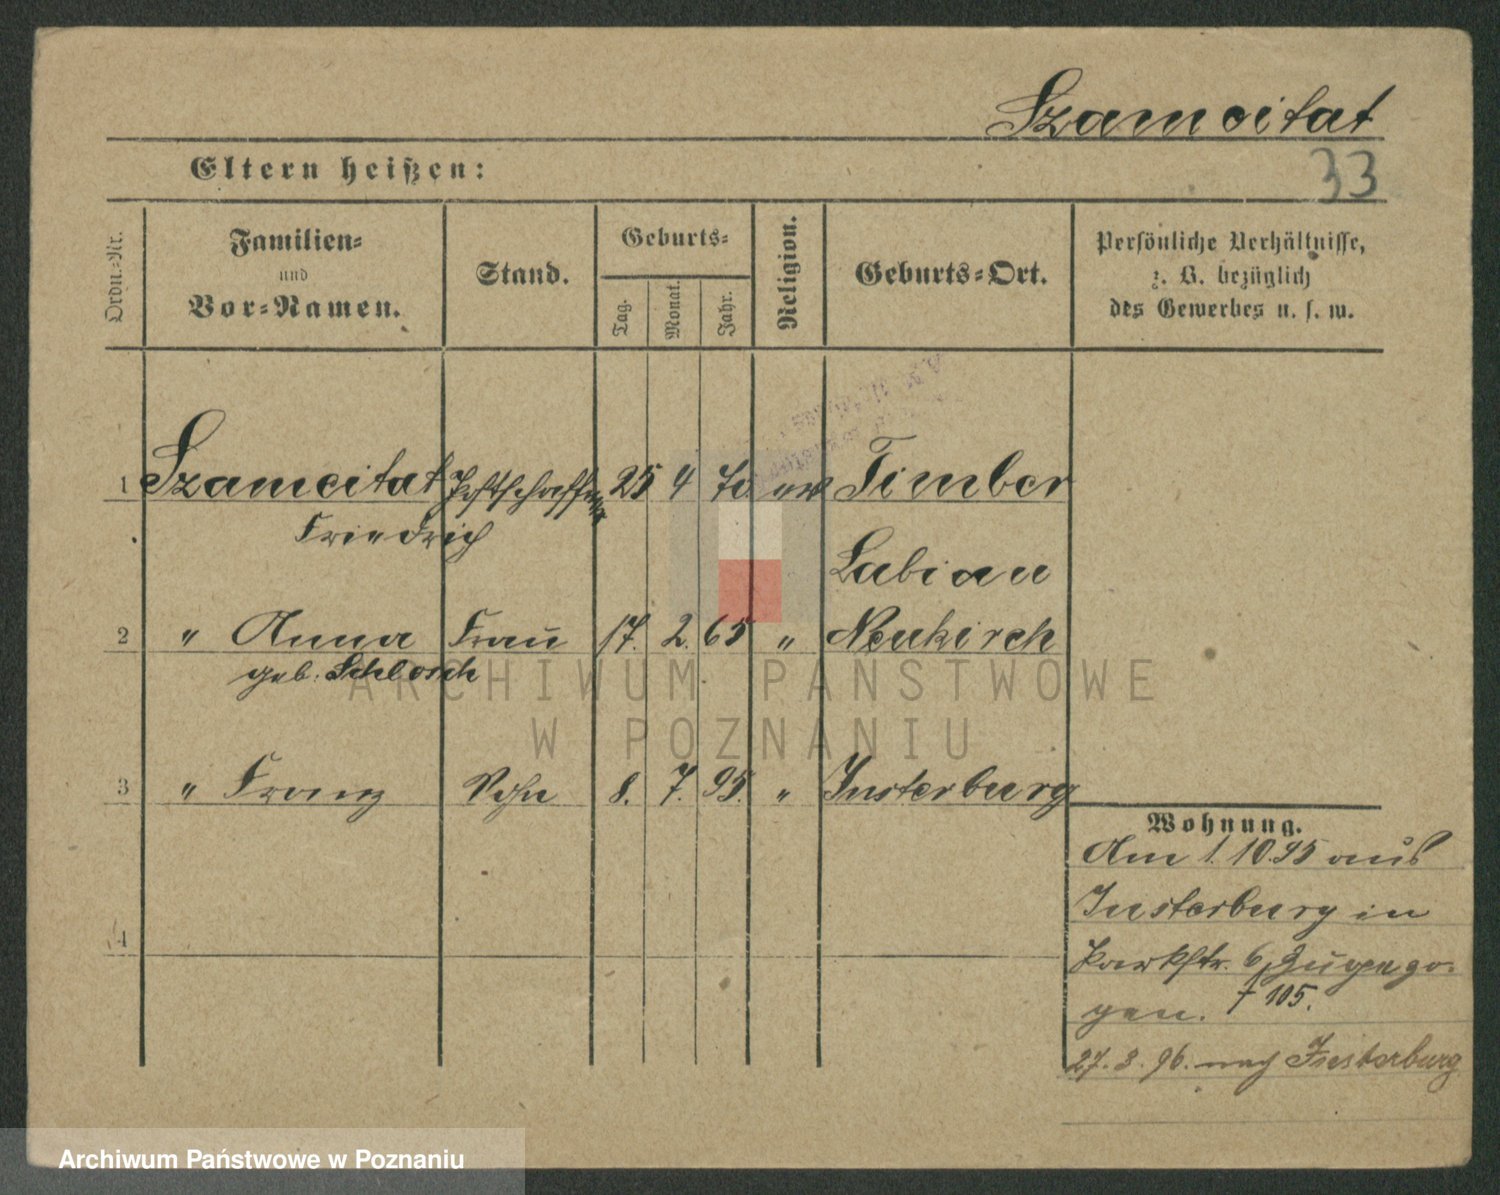 Szameitat
33
Eltern heißen:
Ordn.-Nr.
Familien-
und
Vor-Namen.
Stand.
Geburts-
Tag.
Monat.
Jahr.
Religion.
Geburts-Ort.
Persönliche Verhältnisse,
z. B. bezüglich
des Gewerbes u. s. w.
1 Szameitat Postschaffner 25 4 70 ev Timber
Friedrich
Labiau
2 " Anna Frau 17. 2. 65 " Neukirch
geb. Schlosch
3 " Franz Sohn 8. 7. 95. " Insterburg
4
Wohnung.
Am 1. 10. 95 aus
Insterburg in
Parkstr. 6 Zugezo-
gen. 105.
27. 3. 96. nach Insterburg
ARCHIWUM PAŃSTWOWE
W POZNANIU
Archiwum Państwowe w Poznaniu